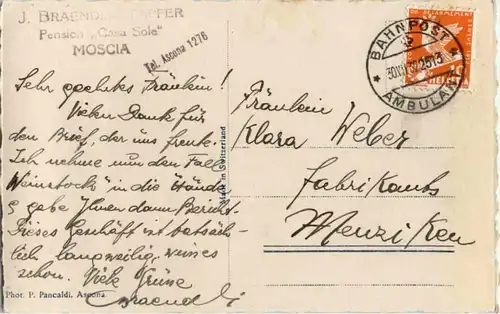 J. BRAENDLI-STAPFER
Pension „Casa Sole"
MOSCIA
Tel. Ascona 1276
Sehr geehrtes Fräulein!
Vielen Dank für
den Brief, der uns freute.
Ich nehme nun den Fall
"Weinstock" in die Hände
& gebe Ihnen dann Bericht.
Dieses Geschäft ist tatsäch-
lich langweilig, weiss es
schon. Viele Grüsse
Braendli
Phot. P. Pancaldi, Ascona.
Made in Switzerland
BAHNPOST
AMBULANT
HELVETIA
Fräulein
Klara Weber
Fabrikants
Menziken